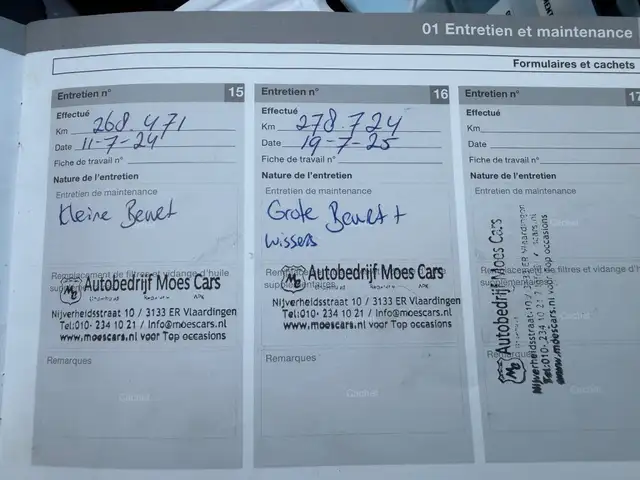 01 Entretien et maintenance
Formulaires et cachets
Entretien n° 15
Effectué
Km 268.471
Date 11-7-24
Fiche de travail n°
Nature de l'entretien
Entretien de maintenance
Kleine Beurt
Remplacement de filtres et vidange d'huile
Autobedrijf Moes Cars
Nijverheidsstraat 10 / 3133 ER Vlaardingen
Tel:010- 234 10 21 / Info@moescars.nl
www.moescars.nl voor Top occasions
Remarques
Cachet
Entretien n° 16
Effectué
Km 278.724
Date 19-7-25
Fiche de travail n°
Nature de l'entretien
Entretien de maintenance
Grote Beurt +
wissers
Autobedrijf Moes Cars
Nijverheidsstraat 10 / 3133 ER Vlaardingen
Tel:010- 234 10 21 / Info@moescars.nl
www.moescars.nl voor Top occasions
Remarques
Cachet
Entretien n° 17
Effectué
Km
Date
Fiche de travail n°
Nature de l'entretien
Entretien de maintenance
Cachet
Autobedrijf Moes Cars
Nijverheidsstraat 10 / 3133 ER Vlaardingen
Tel:010- 234 10 21
www.moescars.nl voor Top occasions
Remarques
Cachet